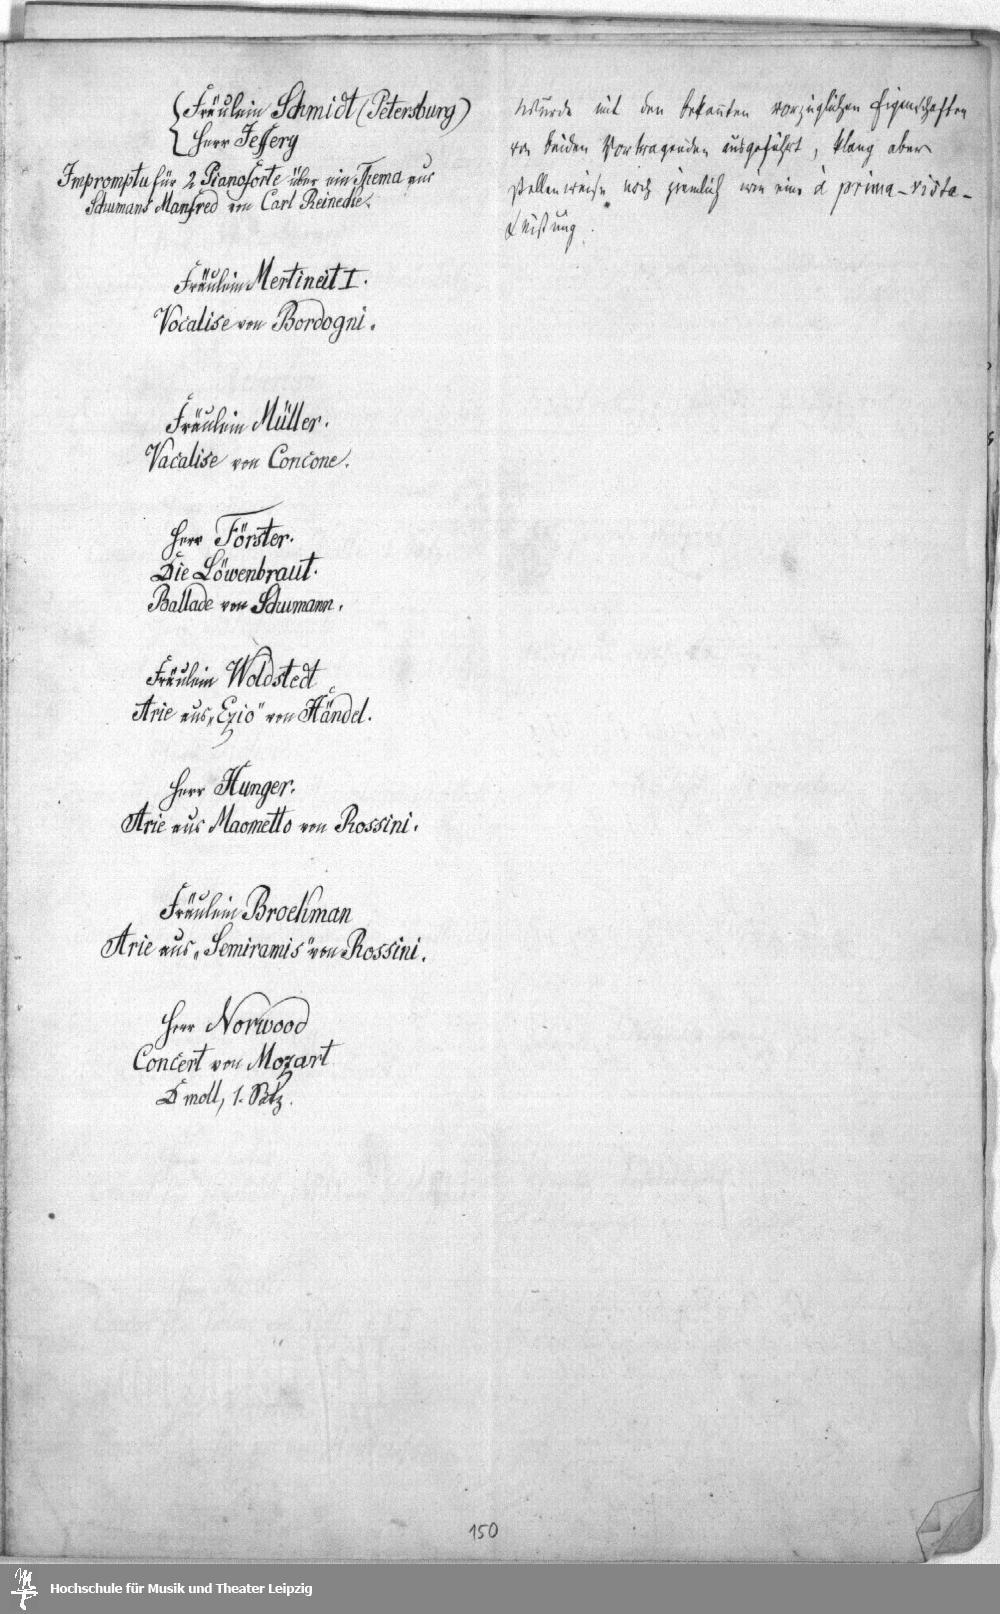 Fräulein Schmidt (Petersburg)
Herr Jeffery
Impromptu für 2 Pianoforte über ein Thema aus
Schumans Manfred von Carl Reinecke.
wurde mit den bekannten vorzüglichen Eigenschaften
von beiden Vortragenden ausgeführt, klang aber
stellenweise noch ziemlich wie eine à prima-vista-
Leistung.
Fräulein Mertineit I.
Vocalise von Bordogni.
Fräulein Müller.
Vacalise von Concone.
Herr Förster.
Die Löwenbraut.
Ballade von Schumann.
Fräulein Woldstedt
Arie aus „Ezio" von Händel.
Herr Hunger.
Arie aus Maometto von Rossini.
Fräulein Broekman
Arie aus „Semiramis" von Rossini.
Herr Norwood
Concert von Mozart
D moll, 1. Satz.
150
Hochschule für Musik und Theater Leipzig